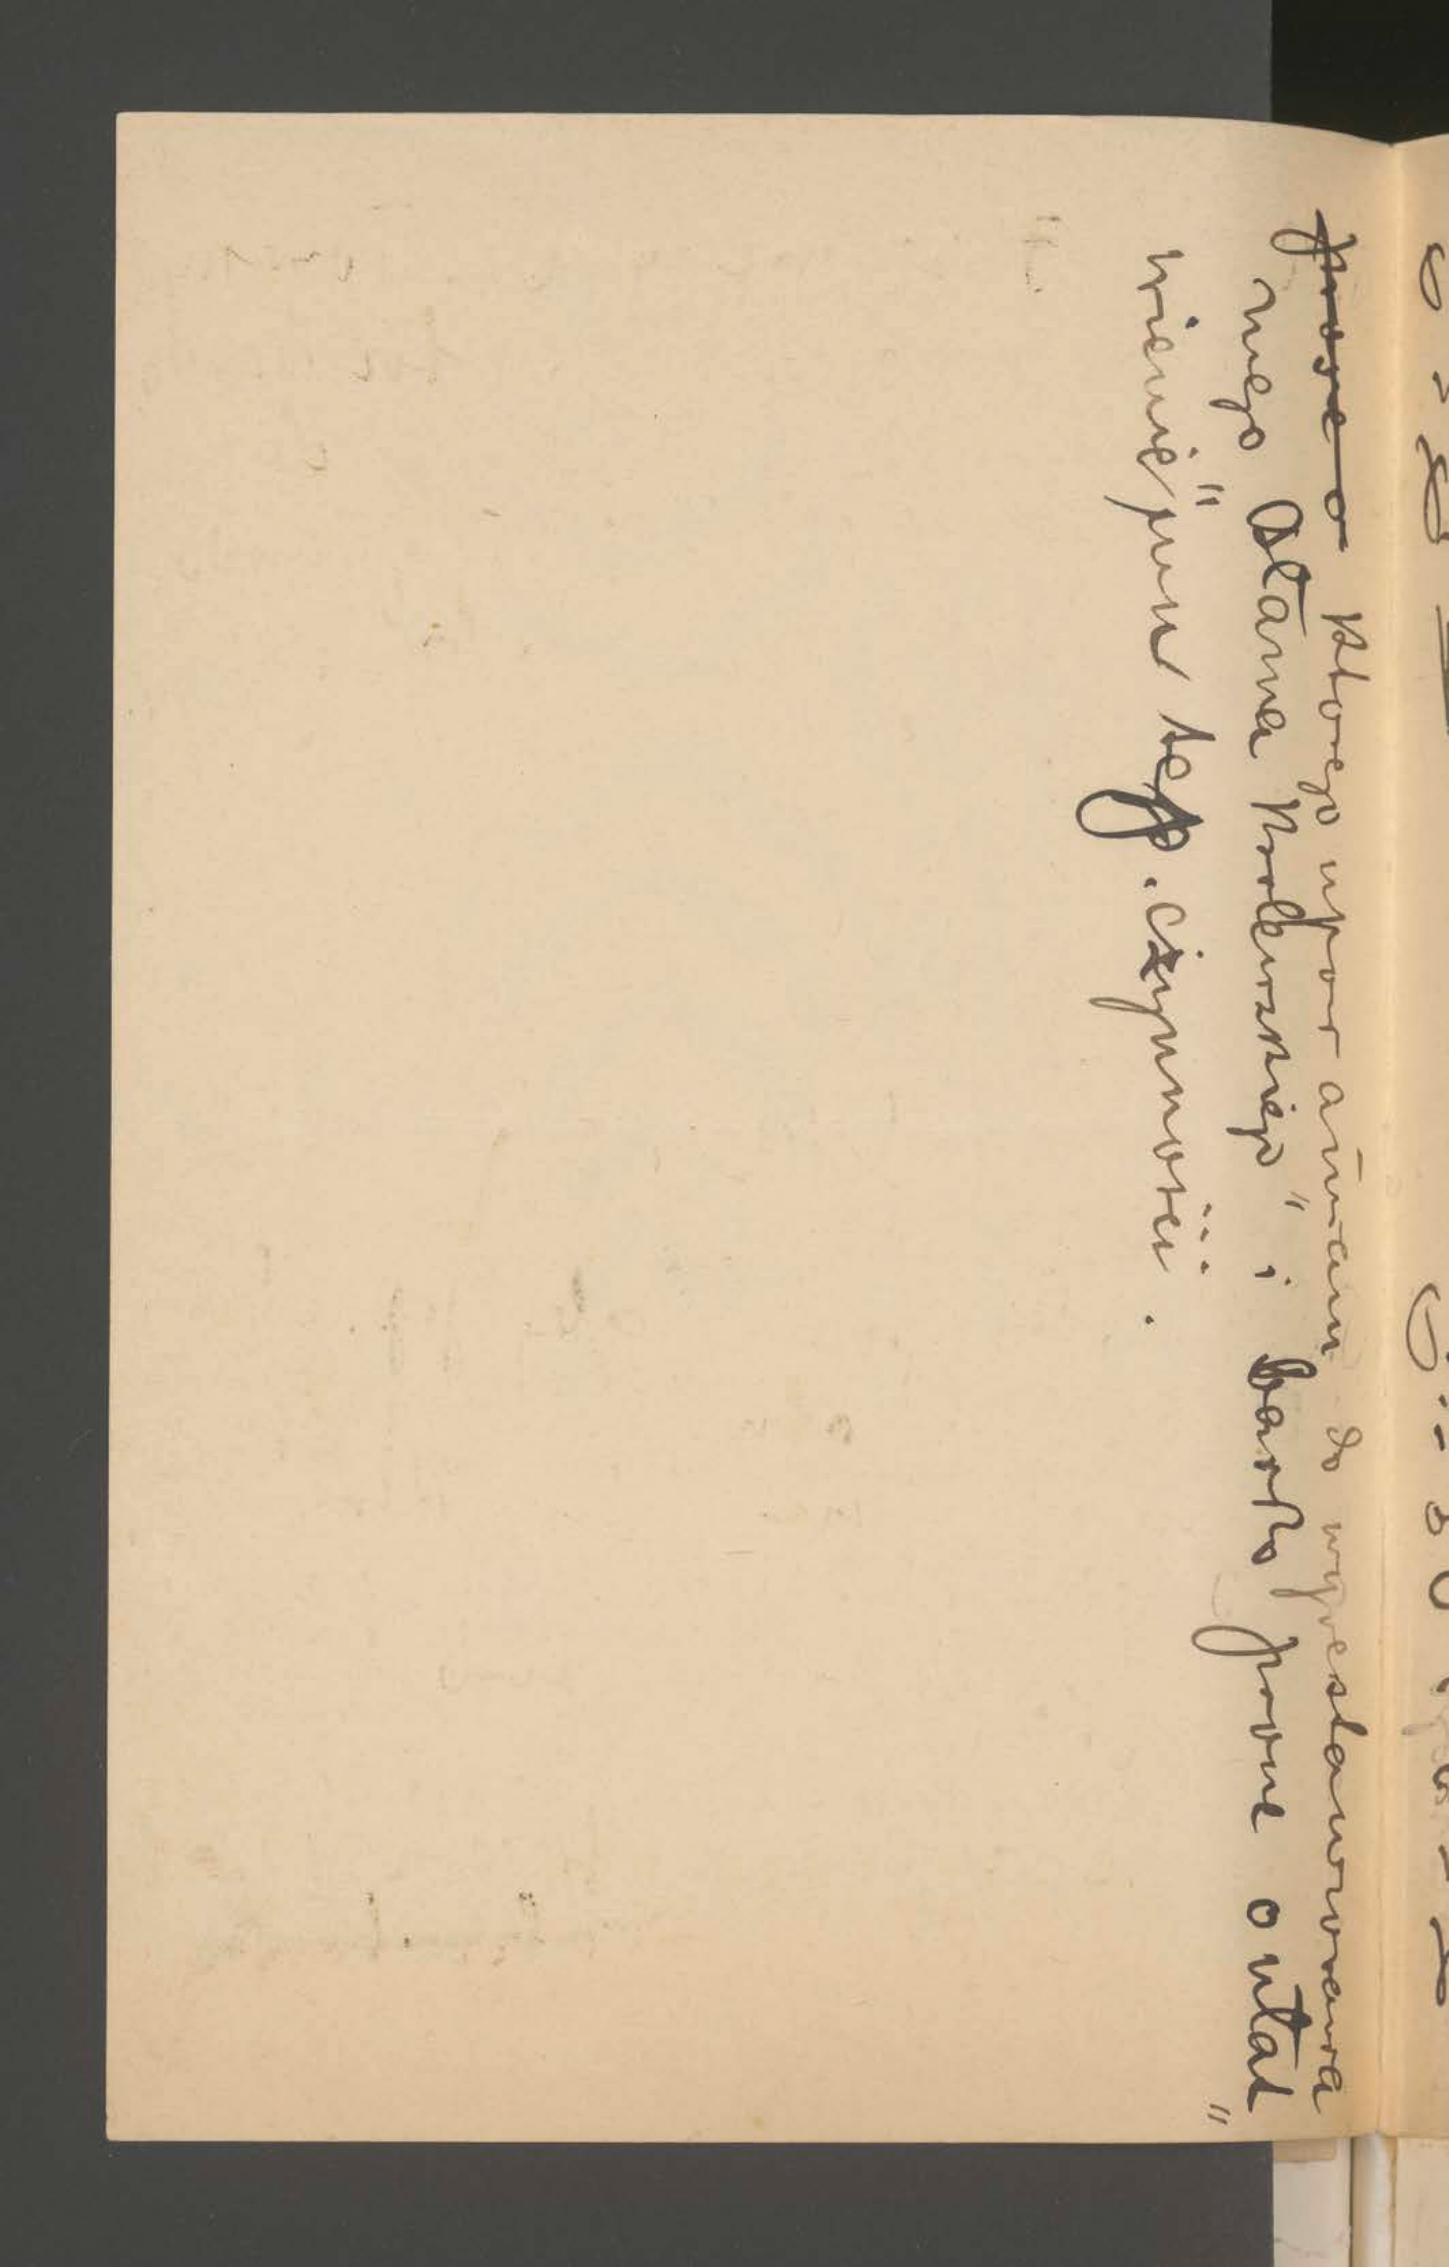 prosze o ktorego upoważniam do wyrestaurowania
mego Ołtarza Królewskiego" i bardzo prosze o ułat"
wienie" jemu tej czynności.